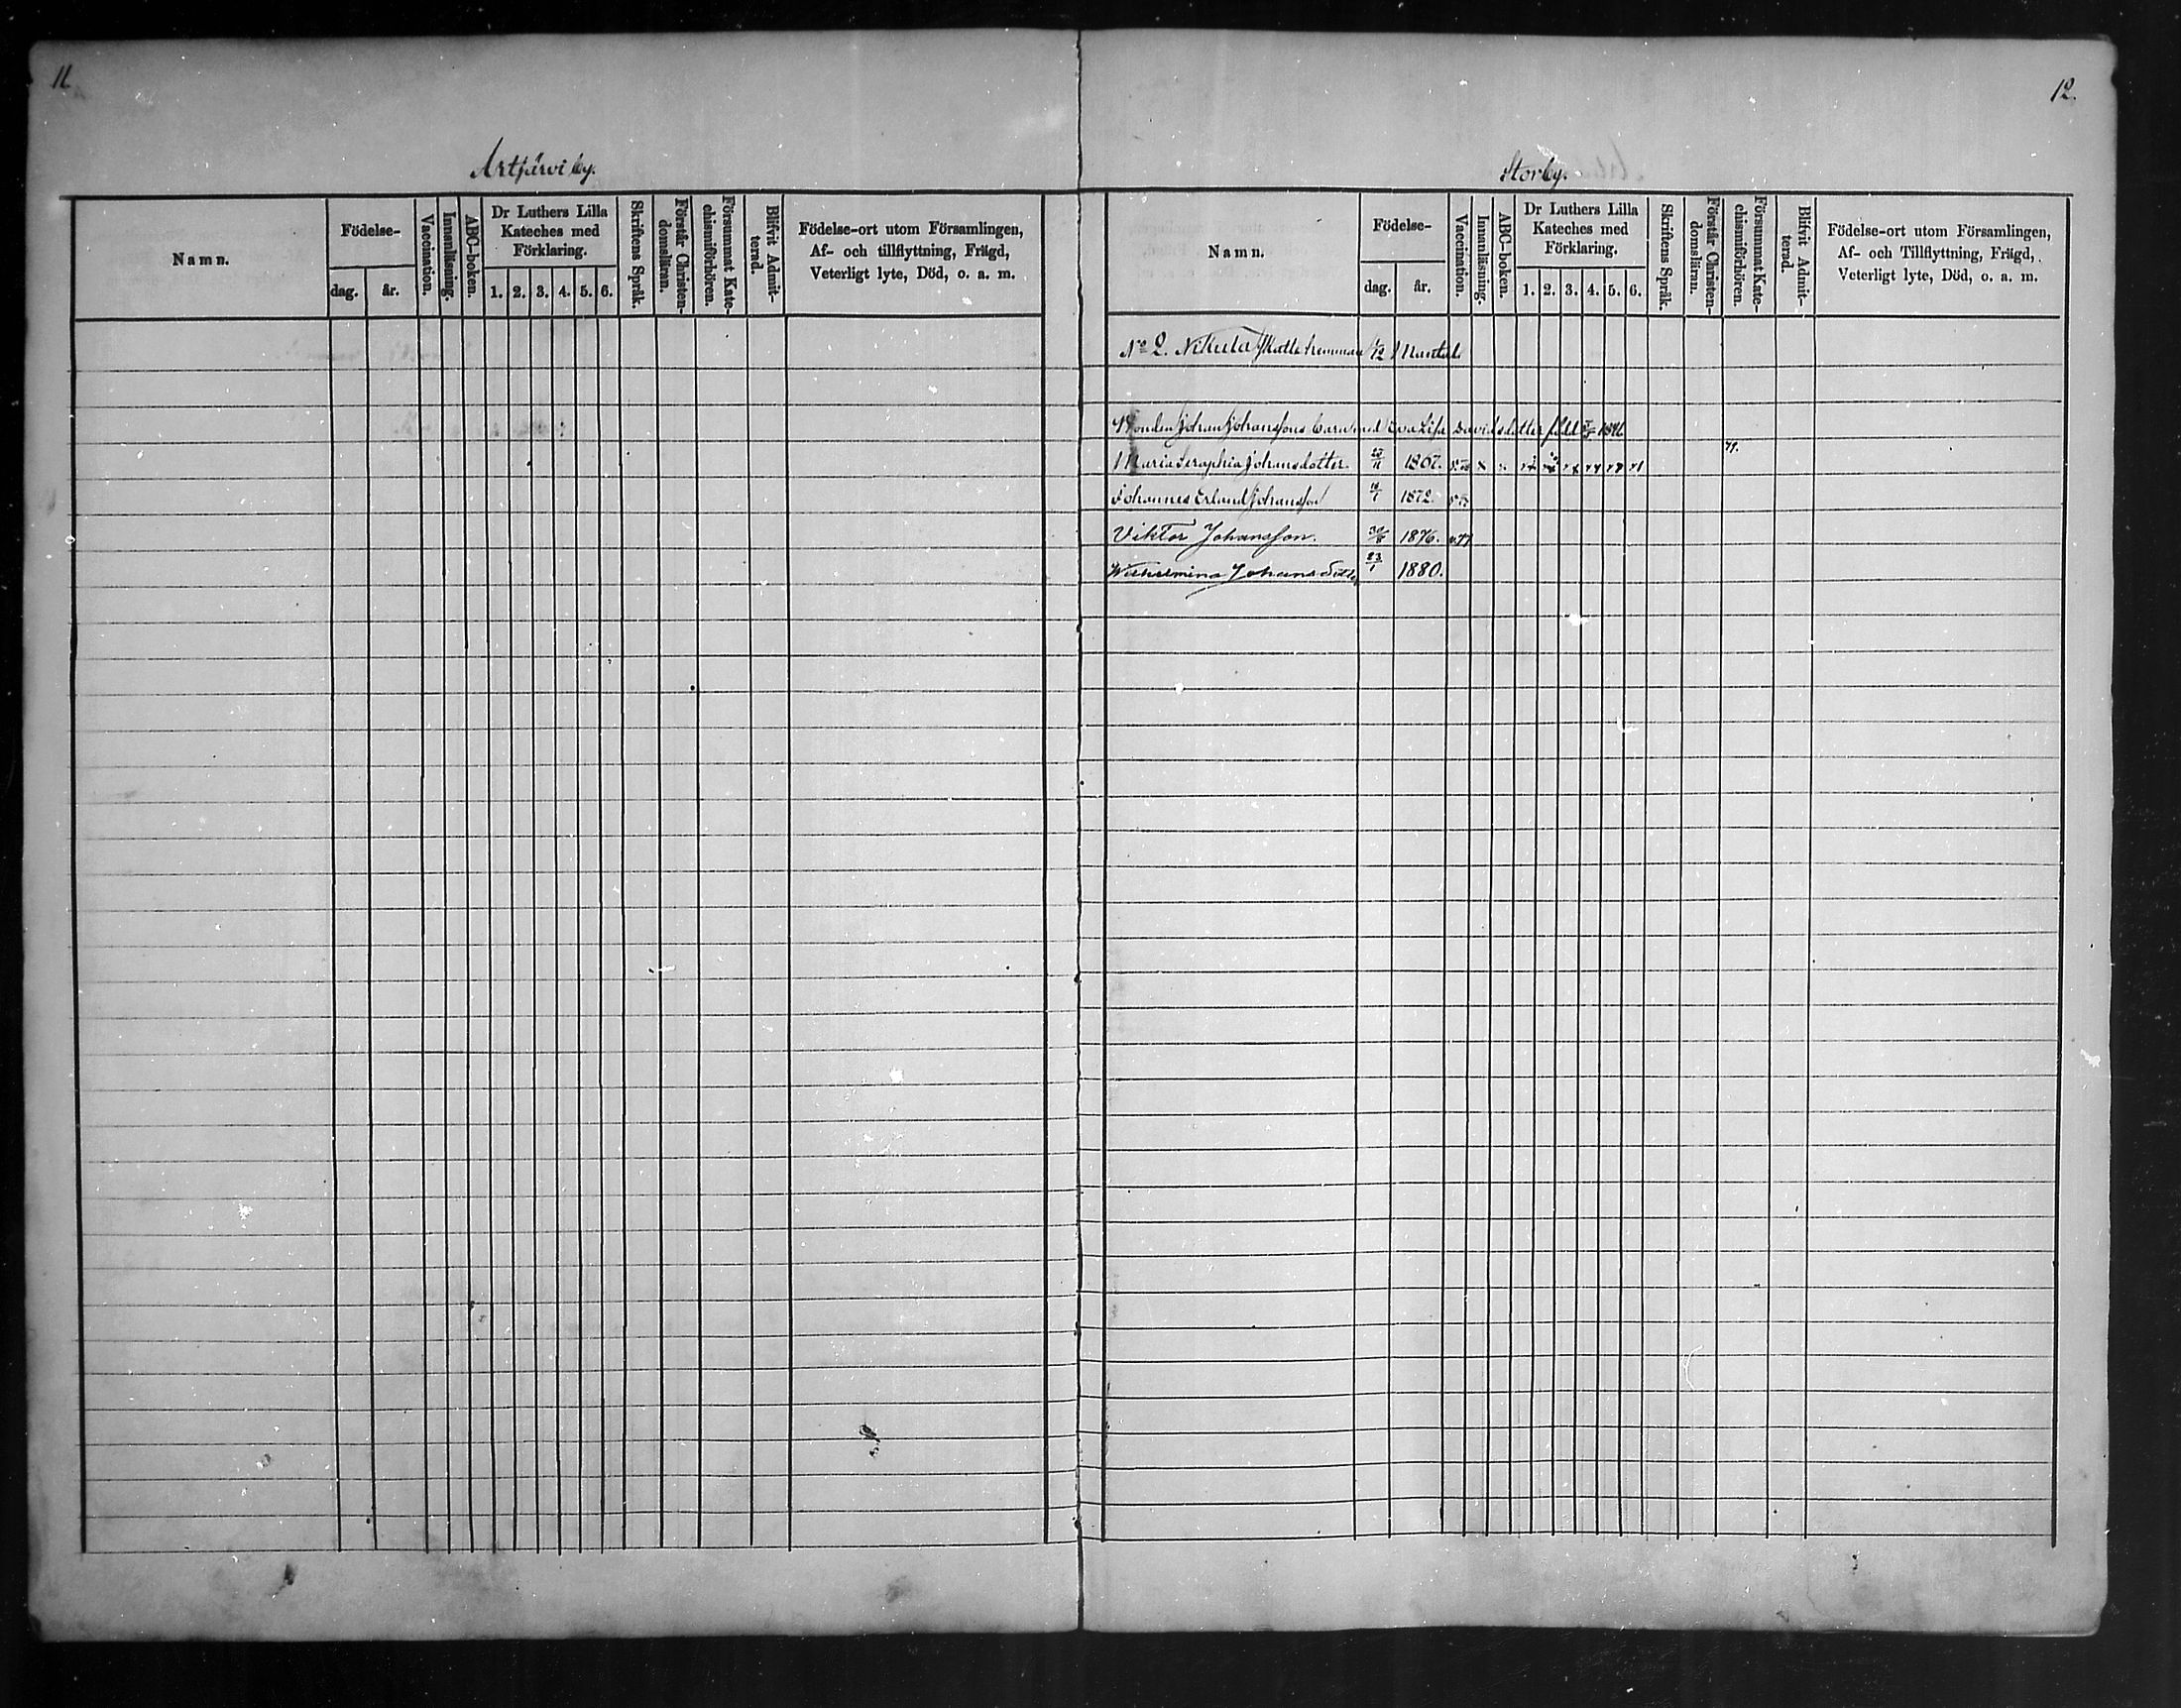 11
Artjärvi by.
Namn.
Födelse-
dag.
år.
Vaccination.
Innanläsning.
ABC-boken.
Dr Luthers Lilla
Kateches med
Förklaring.
1. 2. 3. 4. 5. 6.
Skriftens Språk.
Förstår Christen-
domsläran.
Försummat Kate-
chismiförhören.
Blifvit Admit-
terad.
Födelse-ort utom Församlingen,
Af- och tillflyttning, Frägd,
Veterligt lyte, Död, o. a. m.
12.
Storby.
Namn.
Födelse-
dag.
år.
Vaccination.
Innanläsning.
ABC-boken.
Dr Luthers Lilla
Kateches med
Förklaring.
1. 2. 3. 4. 5. 6.
Skriftens Språk.
Förstår Christen-
domsläran.
Försummat Kate-
chismiförhören.
Blifvit Admit-
terad.
Födelse-ort utom Församlingen,
Af- och Tillflyttning, Frägd,
Veterligt lyte, Död, o. a. m.
No 2. Nikula Skattehemman 1/12 Mantal
Bonden Johan Johanssons barn med Eva Lisa Davidsdotter född 1846
Maria Seraphia Johansdotter. 1867.
79.
Johannes Erland Johansson 1872.
Viktor Johansson. 1876.
Wilhelmina Johansdotter 23/1 1880.